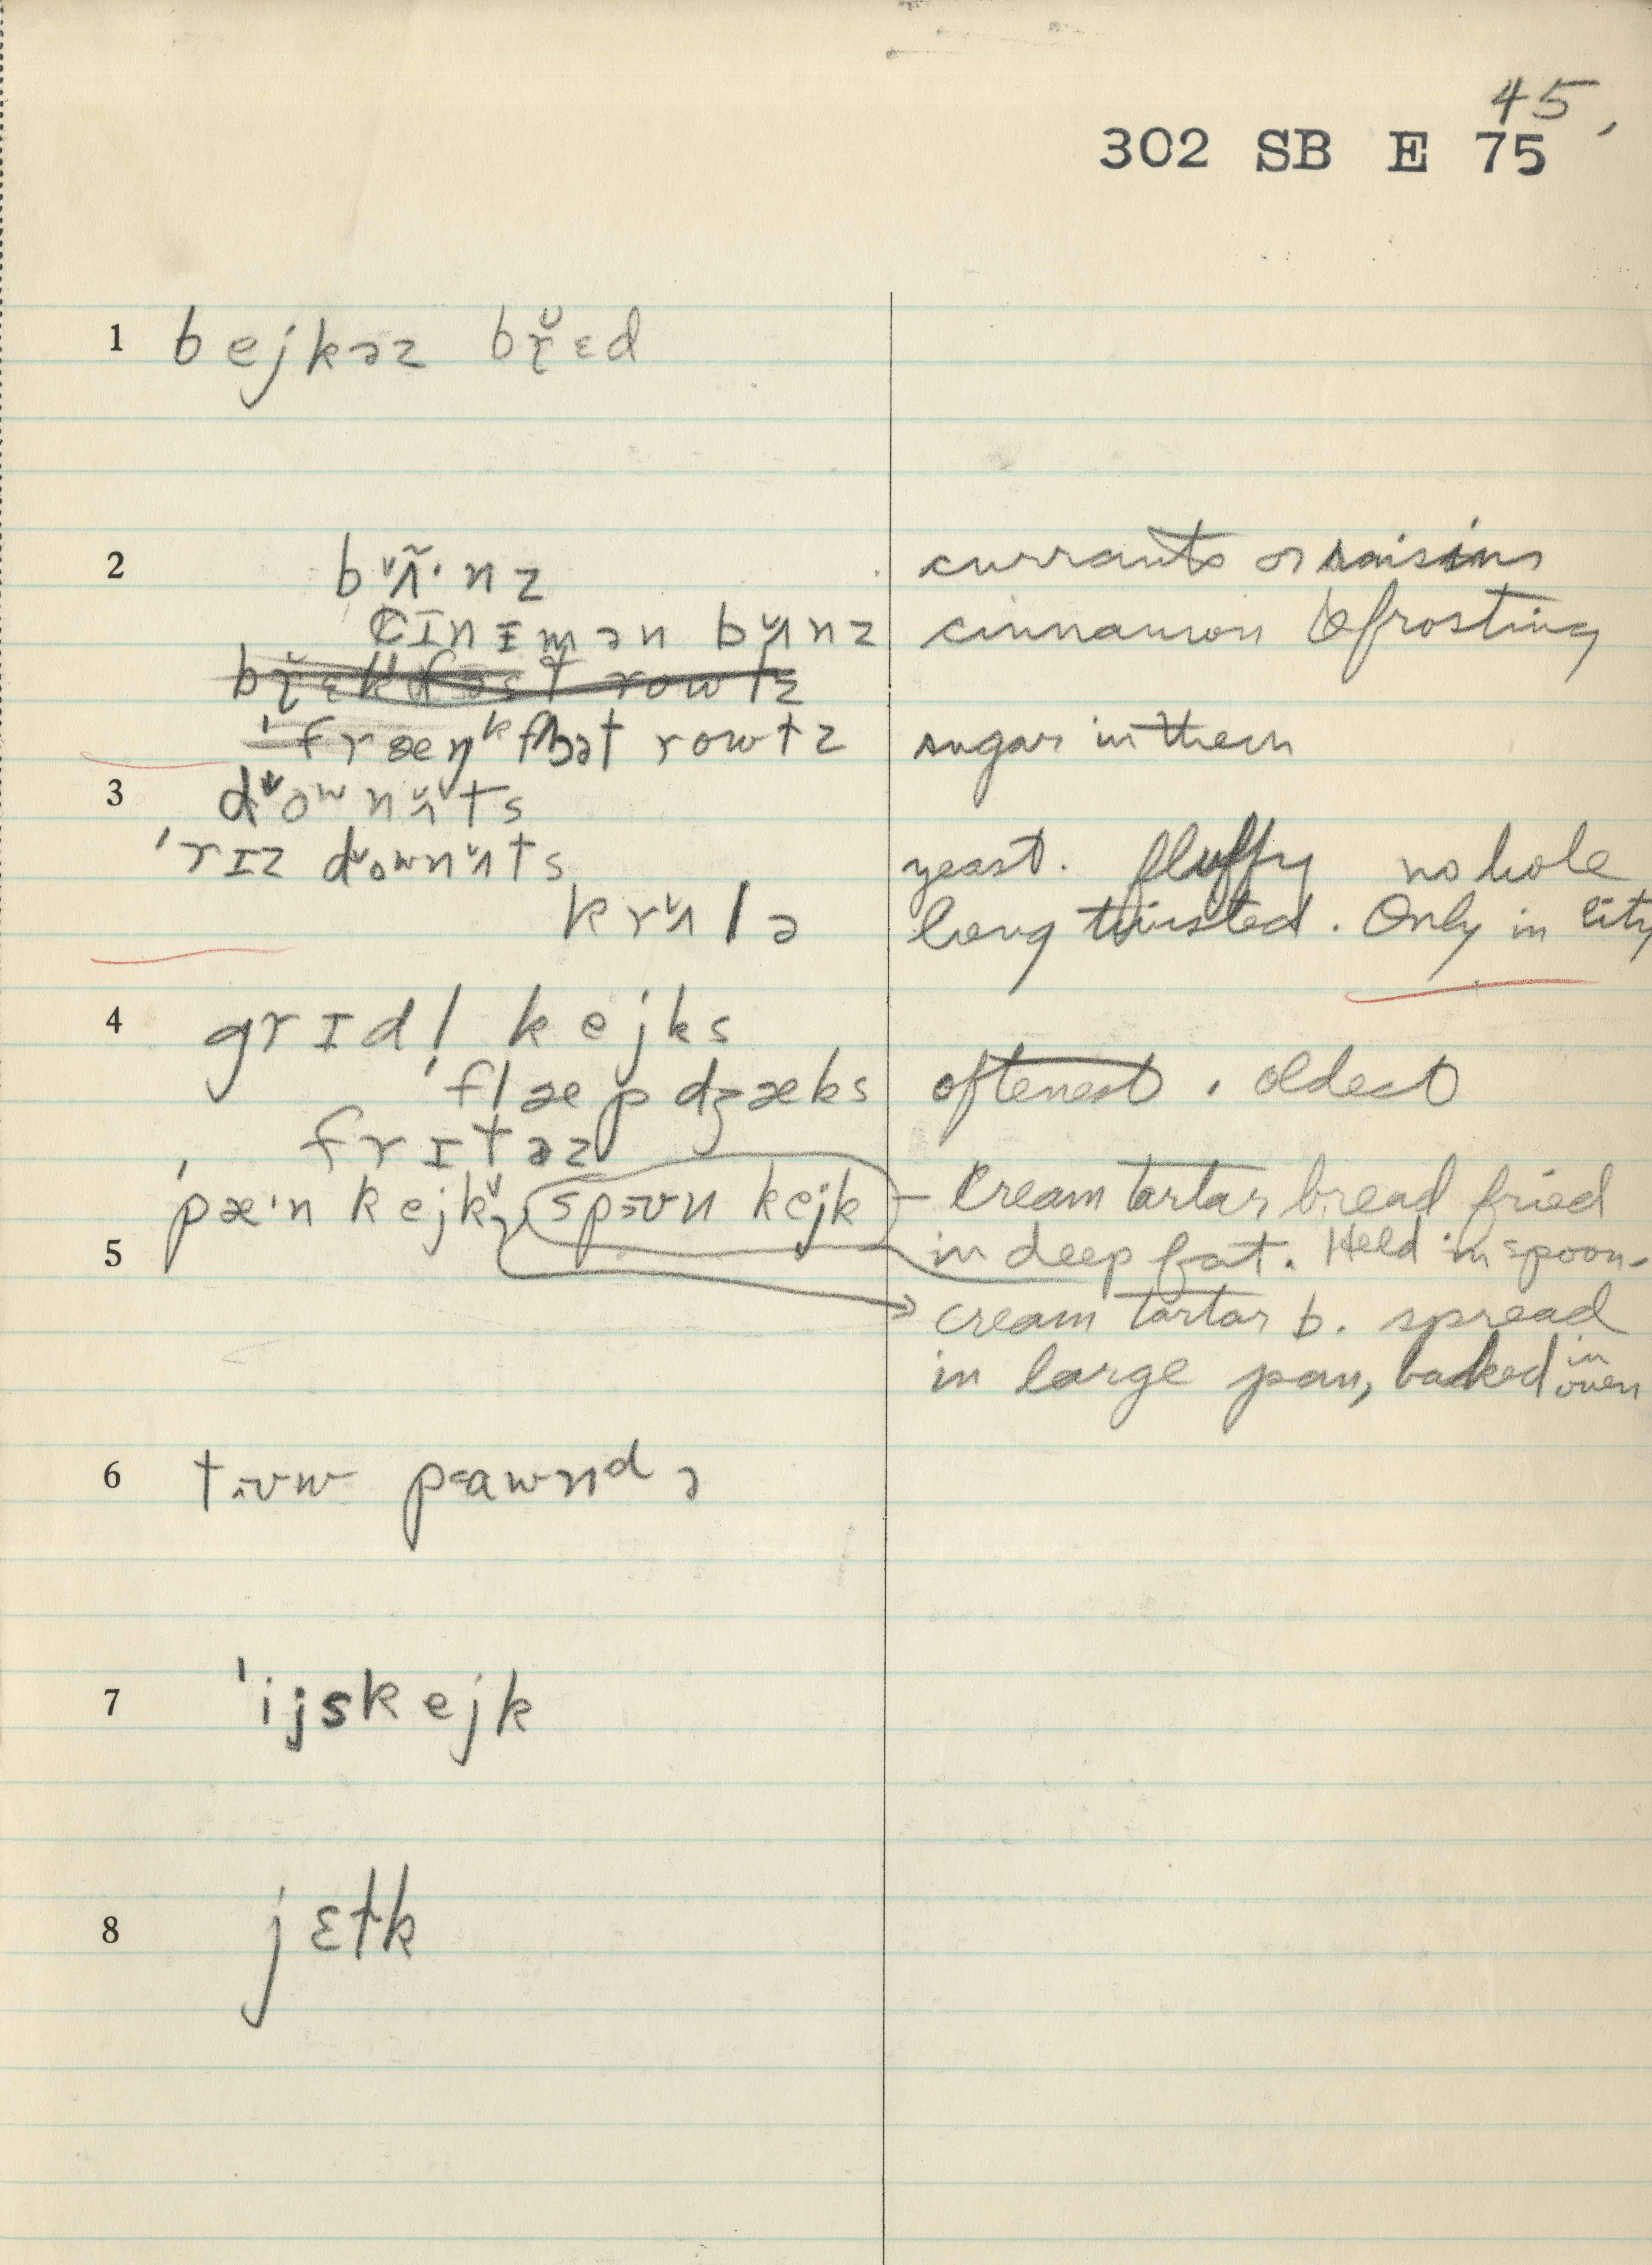 45,
302 SB E 75
1 bejkəz br̯̆ɛd
2 bʌ̃̆·nz currants or raisins
sɪnᵻmən bʌ̆nz cinnamon & frosting
'fræŋᵏfət rowɫz sugar in them
3 dᵛoʷnʌ̆ts
'rɪz dᵛownʌ̆ts yeast. fluffy no hole
krʌ̆lə long twisted. Only in city
4 grɪdl kejks
'flæpdʒæks oftenest. oldest
frɪtəz
'pæ·n kejk spɜʊn kejk – Cream tartar bread fried
5 in deep fat. Held in spoon-
cream tartar b. spread
in large pan, baked in oven
6 tʊw p<awnᵈə
7 'ijskejk
8 jɛɫk